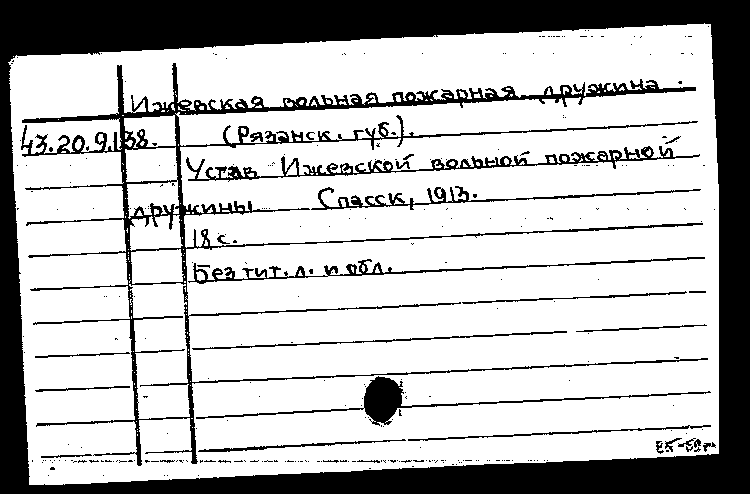 Ижевская вольная пожарная дружина.
43.20.9.138. (Рязанск. губ.).
Устав Ижевской вольной пожарной
дружины Спасск, 1913.
18 с.
Без тит. л. и обл.